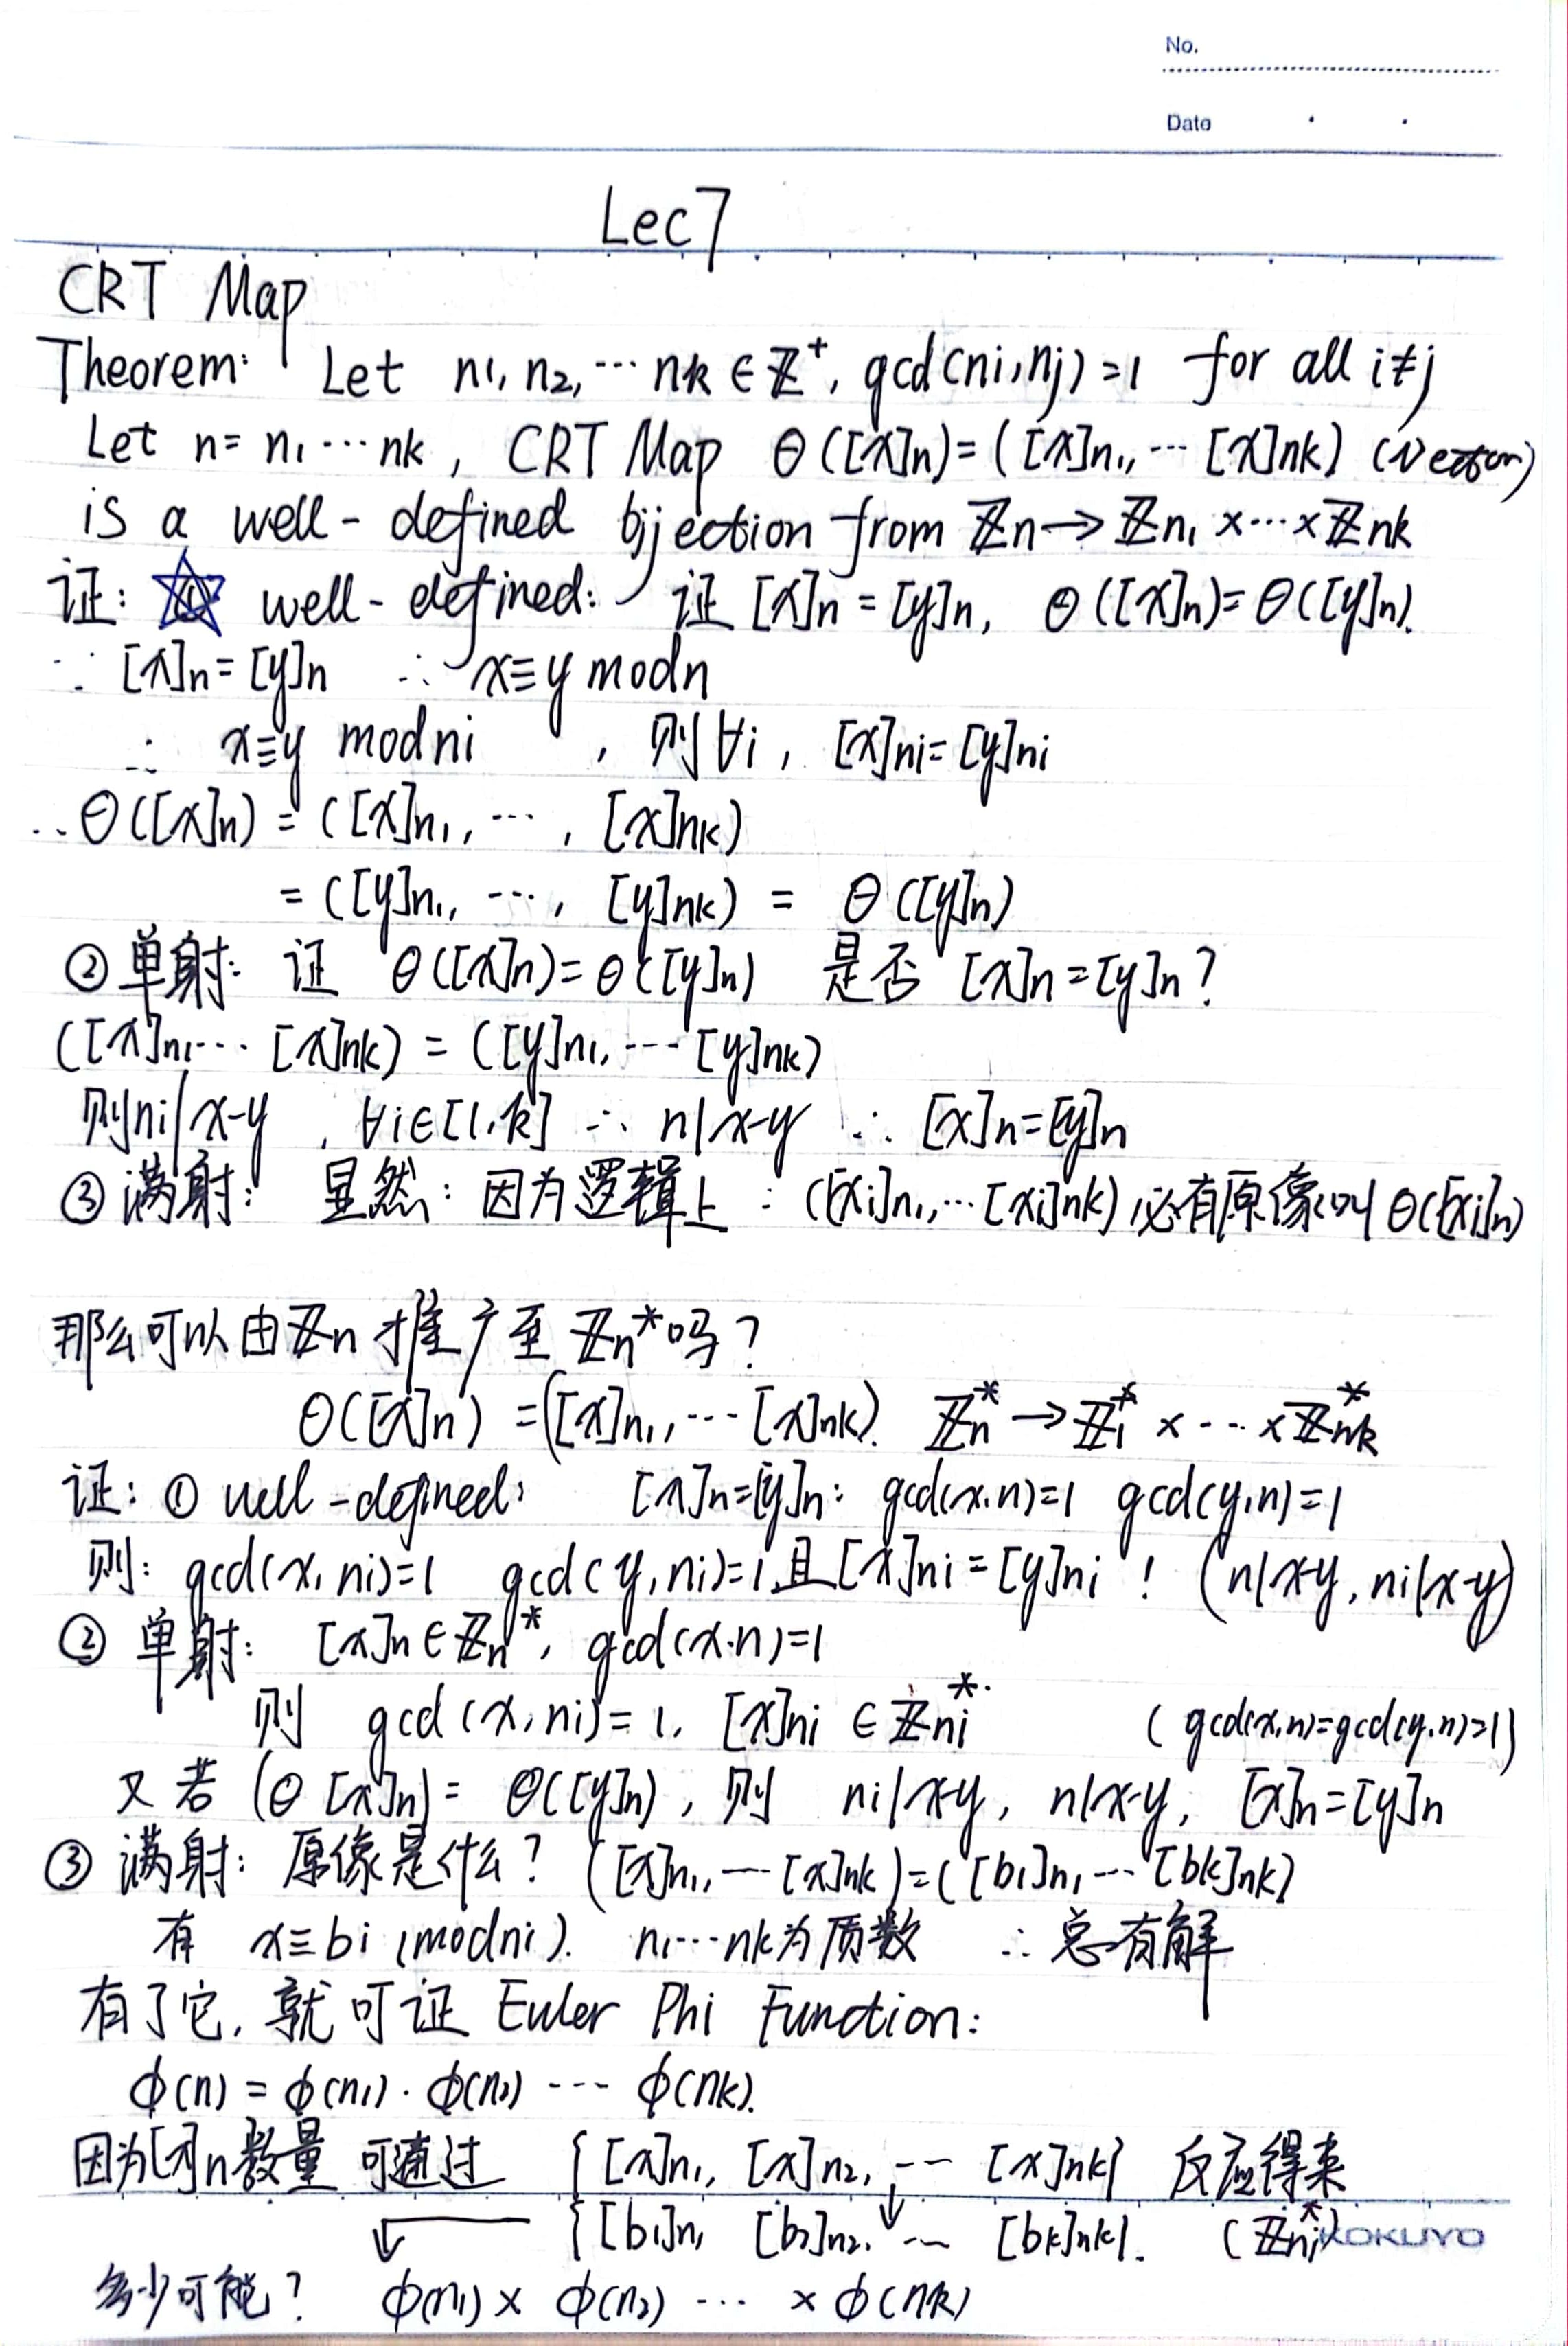 No.
Date
Lec7
CRT Map
Theorem: Let n1, n2, ⋯ nk ∈ ℤ⁺, gcd(ni, nj) = 1 for all i≠j
Let n = n1 ⋯ nk, CRT Map θ([x]n) = ([x]n1, ⋯ [x]nk) (Vector)
is a well-defined bijection from ℤn → ℤn1 × ⋯ × ℤnk
证: ① well-defined: 证 [x]n = [y]n, θ([x]n) = θ([y]n).
∵ [x]n = [y]n ∴ x≡y mod n
∴ x≡y mod ni , 则 ∀i, [x]ni = [y]ni
∴ θ([x]n) = ([x]n1, ⋯, [x]nk)
= ([y]n1, ⋯, [y]nk) = θ([y]n)
② 单射: 证 θ([x]n) = θ([y]n) 是否 [x]n = [y]n?
([x]n1 ⋯ [x]nk) = ([y]n1, ⋯ [y]nk)
则 ni | x-y, ∀i∈[1,k] ∴ n | x-y ∴ [x]n = [y]n
③ 满射: 显然: 因为逻辑上: ([xi]n1, ⋯ [xi]nk) 必有原像叫 θ([xi]n)
那么可以由 ℤn 推广至 ℤn* 吗?
θ([x]n) = ([x]n1, ⋯ [x]nk). ℤn* → ℤ1* × ⋯ × ℤnk*
证: ① well-defined: [x]n = [y]n: gcd(x,n)=1 gcd(y,n)=1
则: gcd(x, ni)=1 gcd(y, ni)=1 且 [x]ni = [y]ni ! (n|x-y, ni|x-y)
② 单射: [x]n ∈ ℤn*, gcd(x,n)=1
则 gcd(x, ni) = 1, [x]ni ∈ ℤni* (gcd(x,n)=gcd(y,n)=1)
又若 (θ [x]n) = θ([y]n), 则 ni|x-y, n|x-y, [x]n = [y]n
③ 满射: 原像是什么? ([x]n1, ⋯ [x]nk) = ([b1]n1 ⋯ [bk]nk)
有 x≡bi (mod ni). n1⋯nk为质数 ∴ 总有解
有了它, 就可证 Euler Phi Function:
φ(n) = φ(n1)·φ(n2) ⋯ φ(nk).
因为[x]n数量 可通过 {[x]n1, [x]n2, ⋯ [x]nk} 反应得来
{[b1]n1 [b2]n2, ⋯ [bk]nk}. (ℤni*)
KOKUYO
多少可能? φ(n1) × φ(n2) ⋯ × φ(nk)